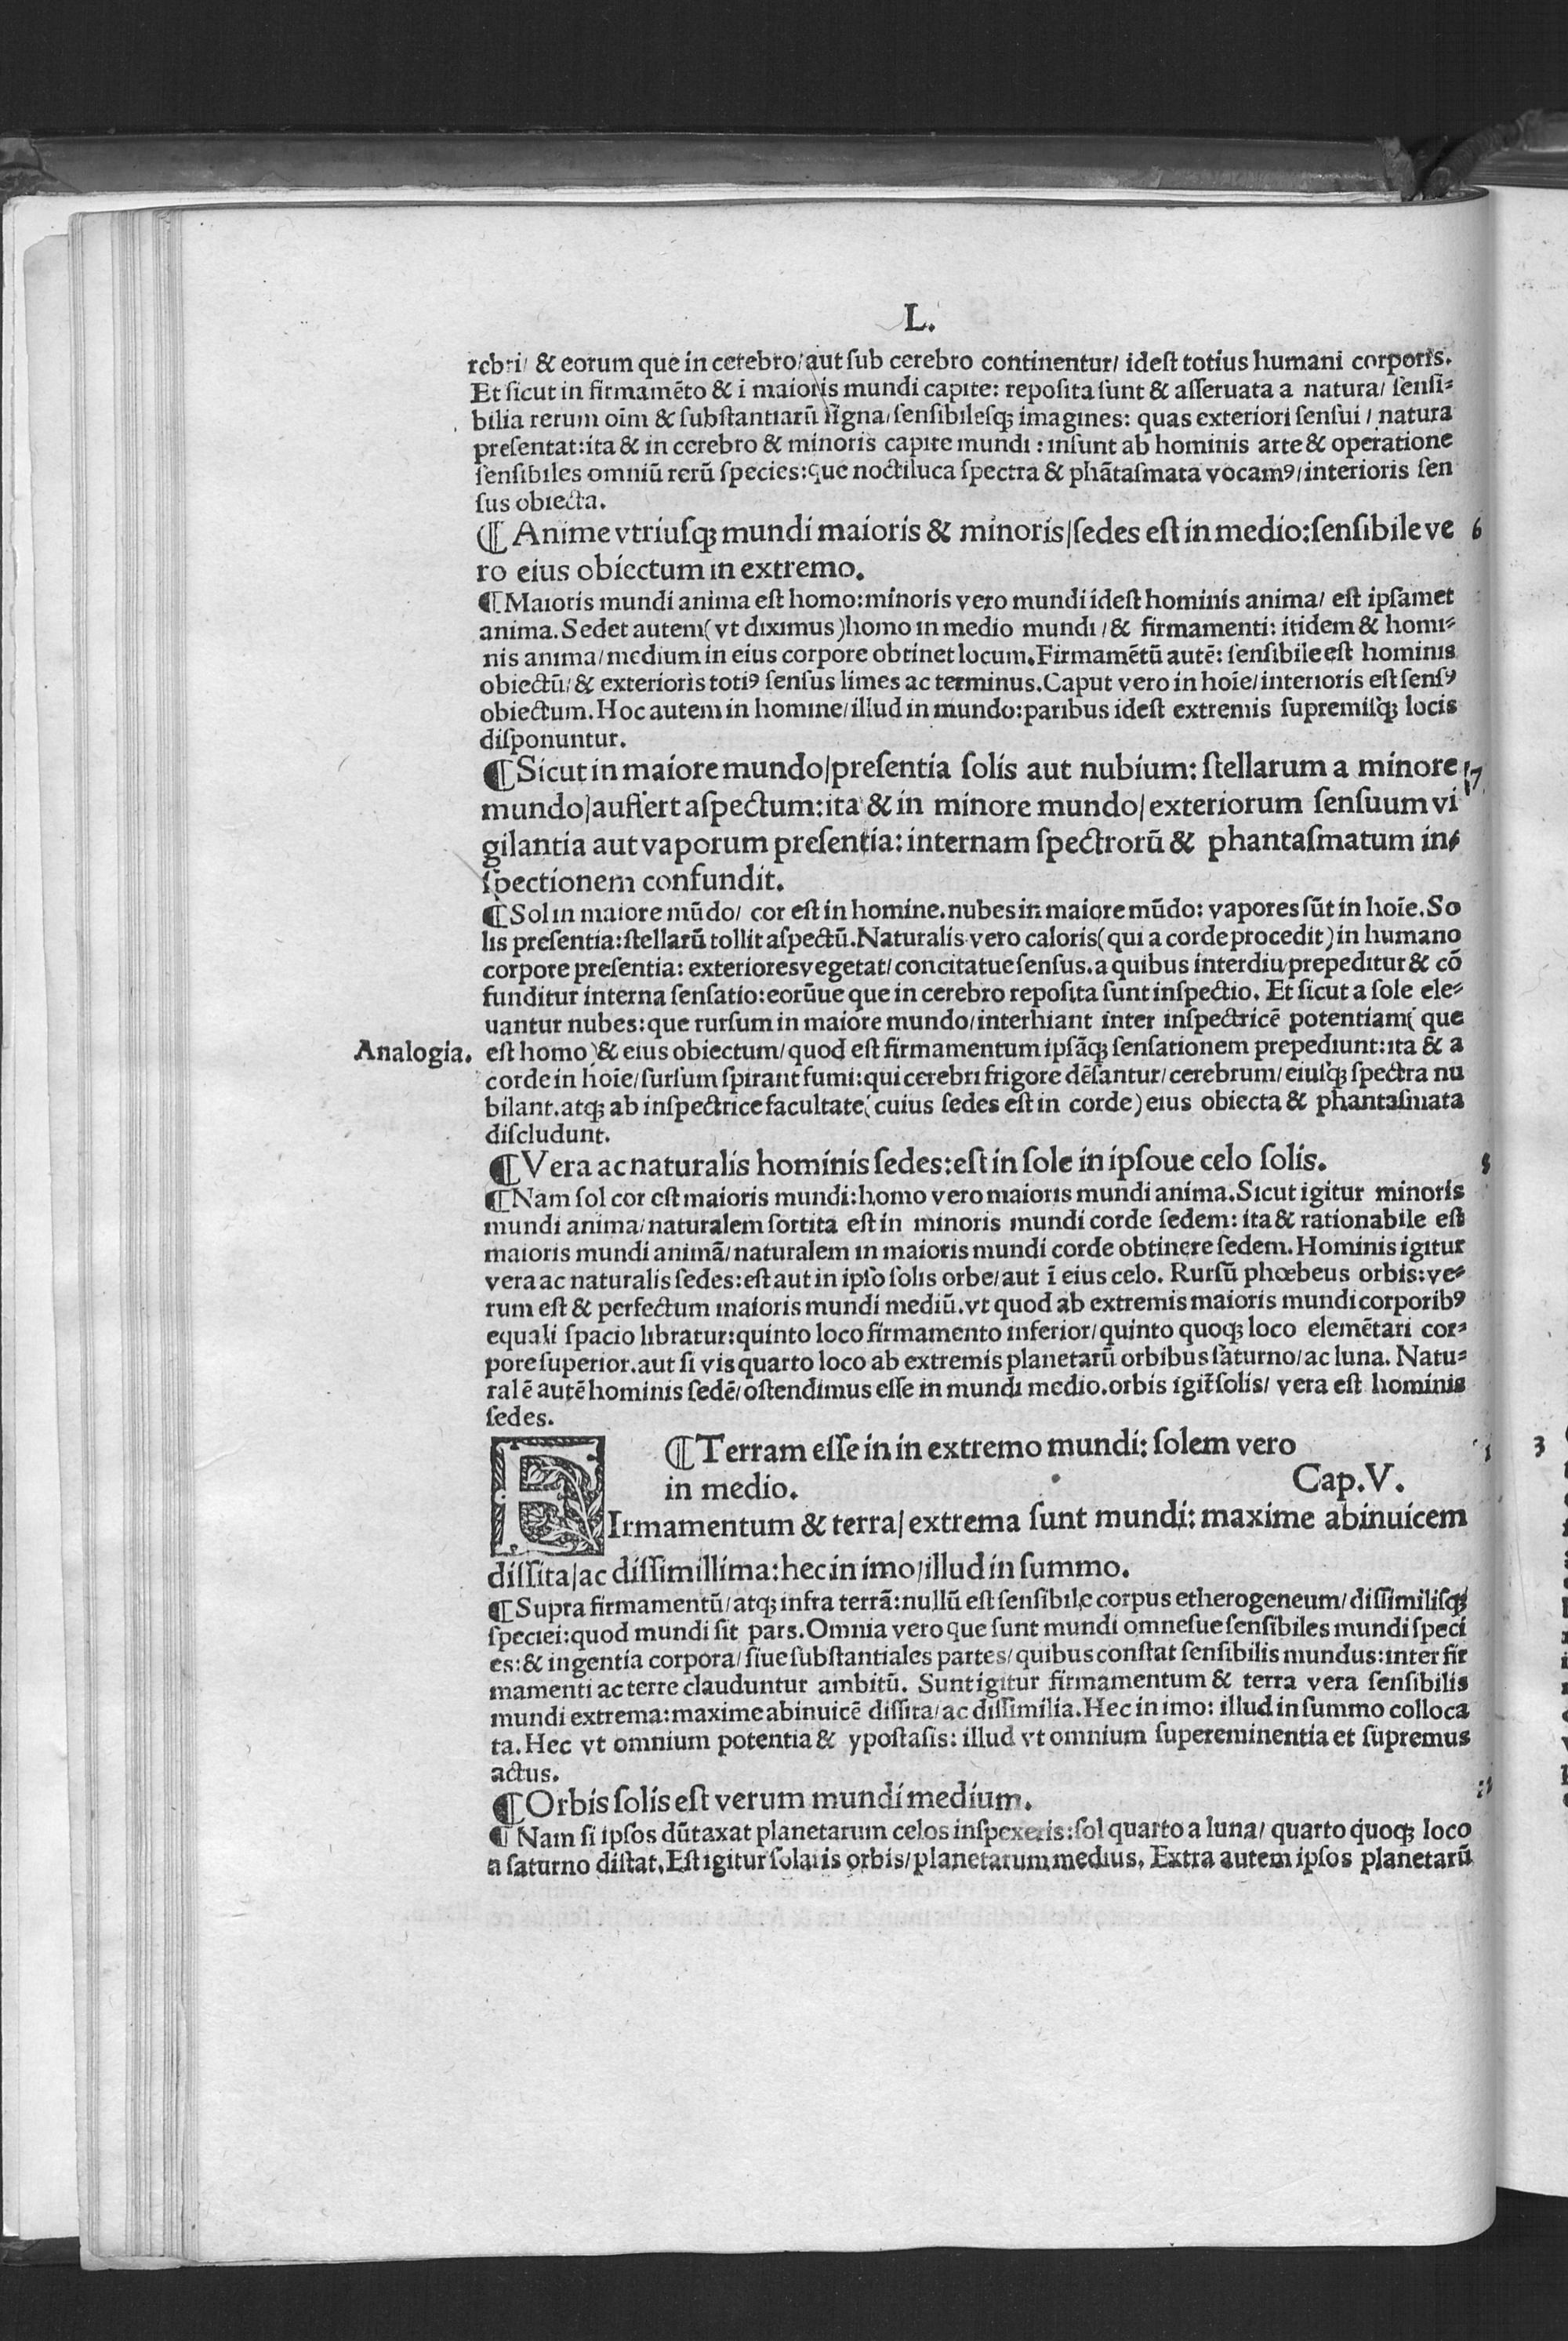 L.
rebri/ & eorum que in cerebro/aut sub cerebro continentur/ idest totius humani corporis.
Et sicut in firmamēto & i maioris mundi capite: reposita sunt & asseruata a natura/ sensi-
bilia rerum oīm & substantiarū signa/sensibilesqꝫ imagines: quas exteriori sensui / natura
presentat:ita & in cerebro & minoris capite mundi : insunt ab hominis arte & operatione
sensibiles omniū rerū species:que noctiluca spectra & phātasmata vocamꝰ/interioris sen
sus obiecta.
¶ Anime vtriusqꝫ mundi maioris & minoris/sedes est in medio:sensibile ve 6
ro eius obiectum in extremo.
¶Maioris mundi anima est homo:minoris vero mundi idest hominis anima/ est ipsamet
anima.Sedet autem(vt diximus)homo in medio mundi /& firmamenti: itidem & homi-
nis anima/medium in eius corpore obtinet locum.Firmamētū autē: sensibile est hominis
obiectū/& exterioris totiꝰ sensus limes ac terminus.Caput vero in hoīe/interioris est sensꝰ
obiectum.Hoc autem in homine/illud in mundo:paribus idest extremis supremisqꝫ locis
disponuntur.
¶Sicut in maiore mundo/presentia solis aut nubium: stellarum a minore 7
mundo/aufiert aspectum:ita & in minore mundo/exteriorum sensuum vi
gilantia aut vaporum presentia: internam spectrorū & phantasmatum in-
spectionem confundit.
¶Sol in maiore mūdo/ cor est in homine.nubes in maiore mūdo: vapores sūt in hoīe.So
lis presentia:stellarū tollit aspectū.Naturalis vero caloris(qui a corde procedit)in humano
corpore presentia: exteriores vegetat/concitatue sensus.a quibus interdiu prepeditur & cō
funditur interna sensatio:eorūue que in cerebro reposita sunt inspectio. Et sicut a sole ele-
uantur nubes:que rursum in maiore mundo/interhiant inter inspectricē potentiam( que
Analogia. est homo)& eius obiectum/quod est firmamentum ipsāqꝫ sensationem prepediunt:ita & a
corde in hoīe/sursum spirant fumi:qui cerebri frigore dēsantur/cerebrum/eiusqꝫ spectra nu
bilant.atqꝫ ab inspectrice facultate(cuius sedes est in corde)eius obiecta & phantasmata
discludunt.
¶Vera ac naturalis hominis sedes:est in sole in ipsoue celo solis. 8
¶Nam sol cor est maioris mundi:homo vero maioris mundi anima.Sicut igitur minoris
mundi anima/naturalem sortita est in minoris mundi corde sedem: ita & rationabile est
maioris mundi animā/naturalem in maioris mundi corde obtinere sedem.Hominis igitur
vera ac naturalis sedes:est aut in ipso solis orbe/aut ī eius celo. Rursū phœbeus orbis:ve-
rum est & perfectum maioris mundi mediū.vt quod ab extremis maioris mundi corporibꝰ
equali spacio libratur:quinto loco firmamento inferior/quinto quoqꝫ loco elemētari cor-
pore superior.aut si vis quarto loco ab extremis planetarū orbibus saturno/ac luna. Natu-
ralē autē hominis sedē/ostendimus esse in mundi medio.orbis igit̃ solis/ vera est hominis
sedes.
¶Terram esse in in extremo mundi: solem vero 1
in medio. Cap.V.
FIrmamentum & terra/extrema sunt mundi: maxime abinuicem
dissita/ac dissimillima:hec in imo/illud in summo.
¶Supra firmamentū/atqꝫ infra terrā:nullū est sensibile corpus etherogeneum/dissimilisqꝫ
speciei:quod mundi sit pars.Omnia vero que sunt mundi omnesue sensibiles mundi speci
es:& ingentia corpora/siue substantiales partes/quibus constat sensibilis mundus:inter fir
mamenti ac terre clauduntur ambitū. Sunt igitur firmamentum & terra vera sensibilis
mundi extrema:maxime abinuicē dissita/ac dissimilia.Hec in imo: illud in summo colloca
ta.Hec vt omnium potentia & ypostasis: illud vt omnium supereminentia et supremus
actus.
¶Orbis solis est verum mundi medium.
¶ Nam si ipsos dūtaxat planetarum celos inspexeris:sol quarto a luna/ quarto quoqꝫ loco
a saturno distat.Est igitur solaris orbis/planetarum medius. Extra autem ipsos planetarū